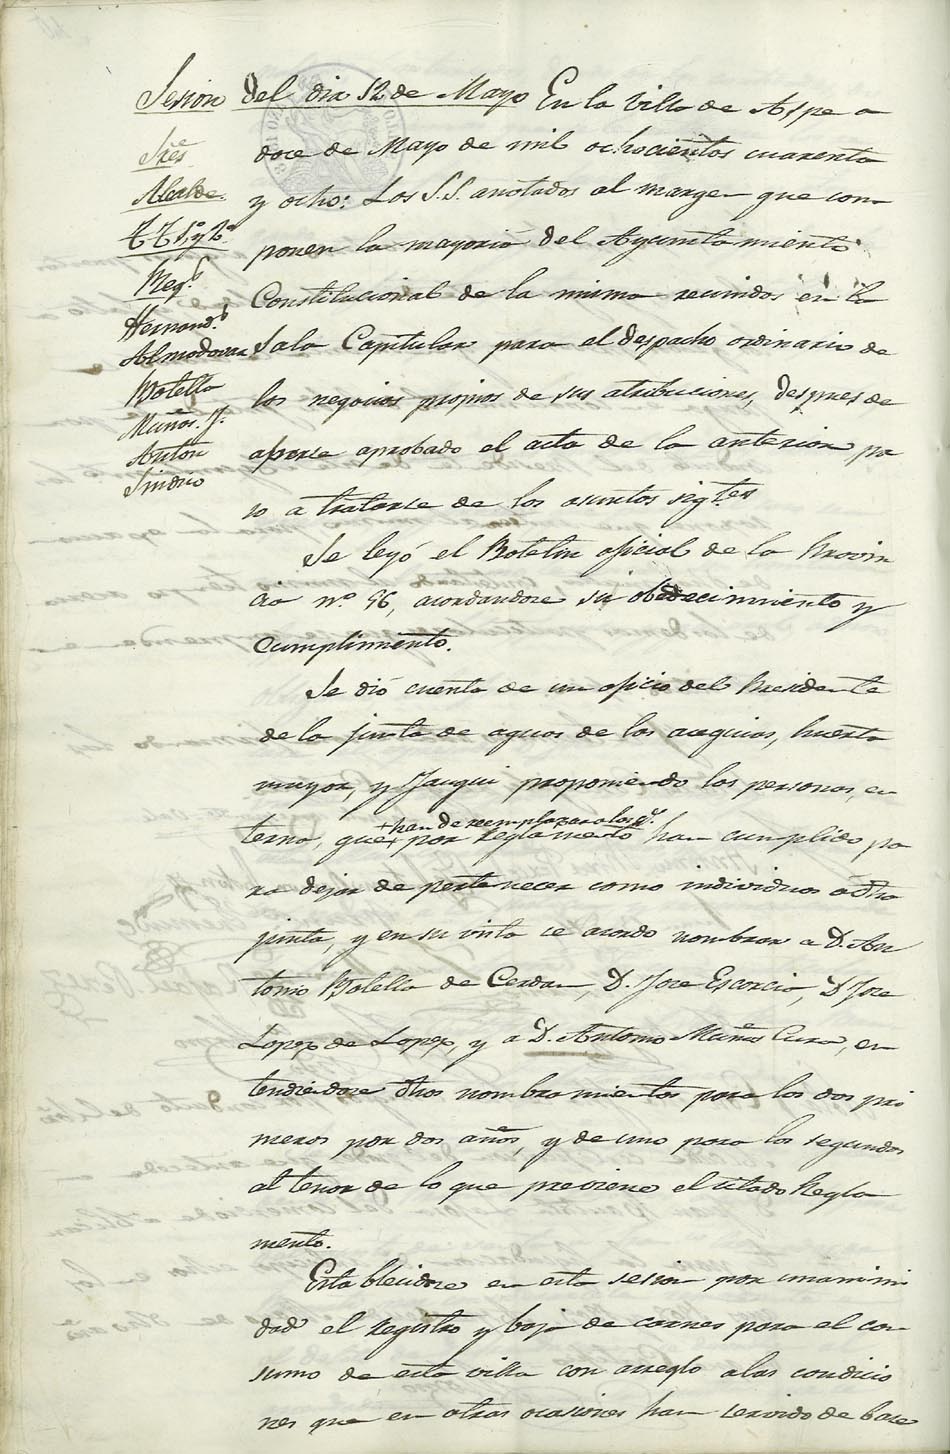 Sesion del dia 12 de Mayo En la Villa de Aspe a
doce de Mayo de mil ochocientos cuarenta
y ocho: Los S.S. anotados al margen que com
ponen la mayoria del Ayuntamiento
Constitucional de la misma reunidos en la
Sala Capitular para el despacho ordinario de
los negocios propios de sus atribuciones, despues de
aberse aprobado el acta de la anterior pa
so a tratarse de los asuntos sigtes
Sres
Alcalde
TT 1º y 2º
Hernand.
Almodovar
Botella
Muños. J.
Anton
Sindico
Se leyó el Boletin oficial de la Provin
cia nº 56, acordandose su obedecimiento y
cumplimiento.
Se dió cuenta de un oficio del Presidente
de la junta de aguas de las acequias, huerta
mayor, y Fauqui proponiendo las personas, en
terna, que + por Reglamento han cumplido pa
+ han de reemplazar a los q.
ra dejar de pertenecer como individuos a dha
junta, y en su vista se acordo nombrar a D. An
tonio Botella de Cerdan, D. Jose Escorcia, D Jose
Lopez de Lopez, y a D. Antonio Muños Cura, en
tendiendose dhos nombramientos para los dos pri
meros por dos años, y de uno para los segundos
al tenor de lo que previene el citado Regla
mento.
Establecidose en esta sesion por unanimi
dad el registro y baja de carnes para el con
sumo de esta villa con arreglo a las condicio
nes que en otras ocasiones han servido de base